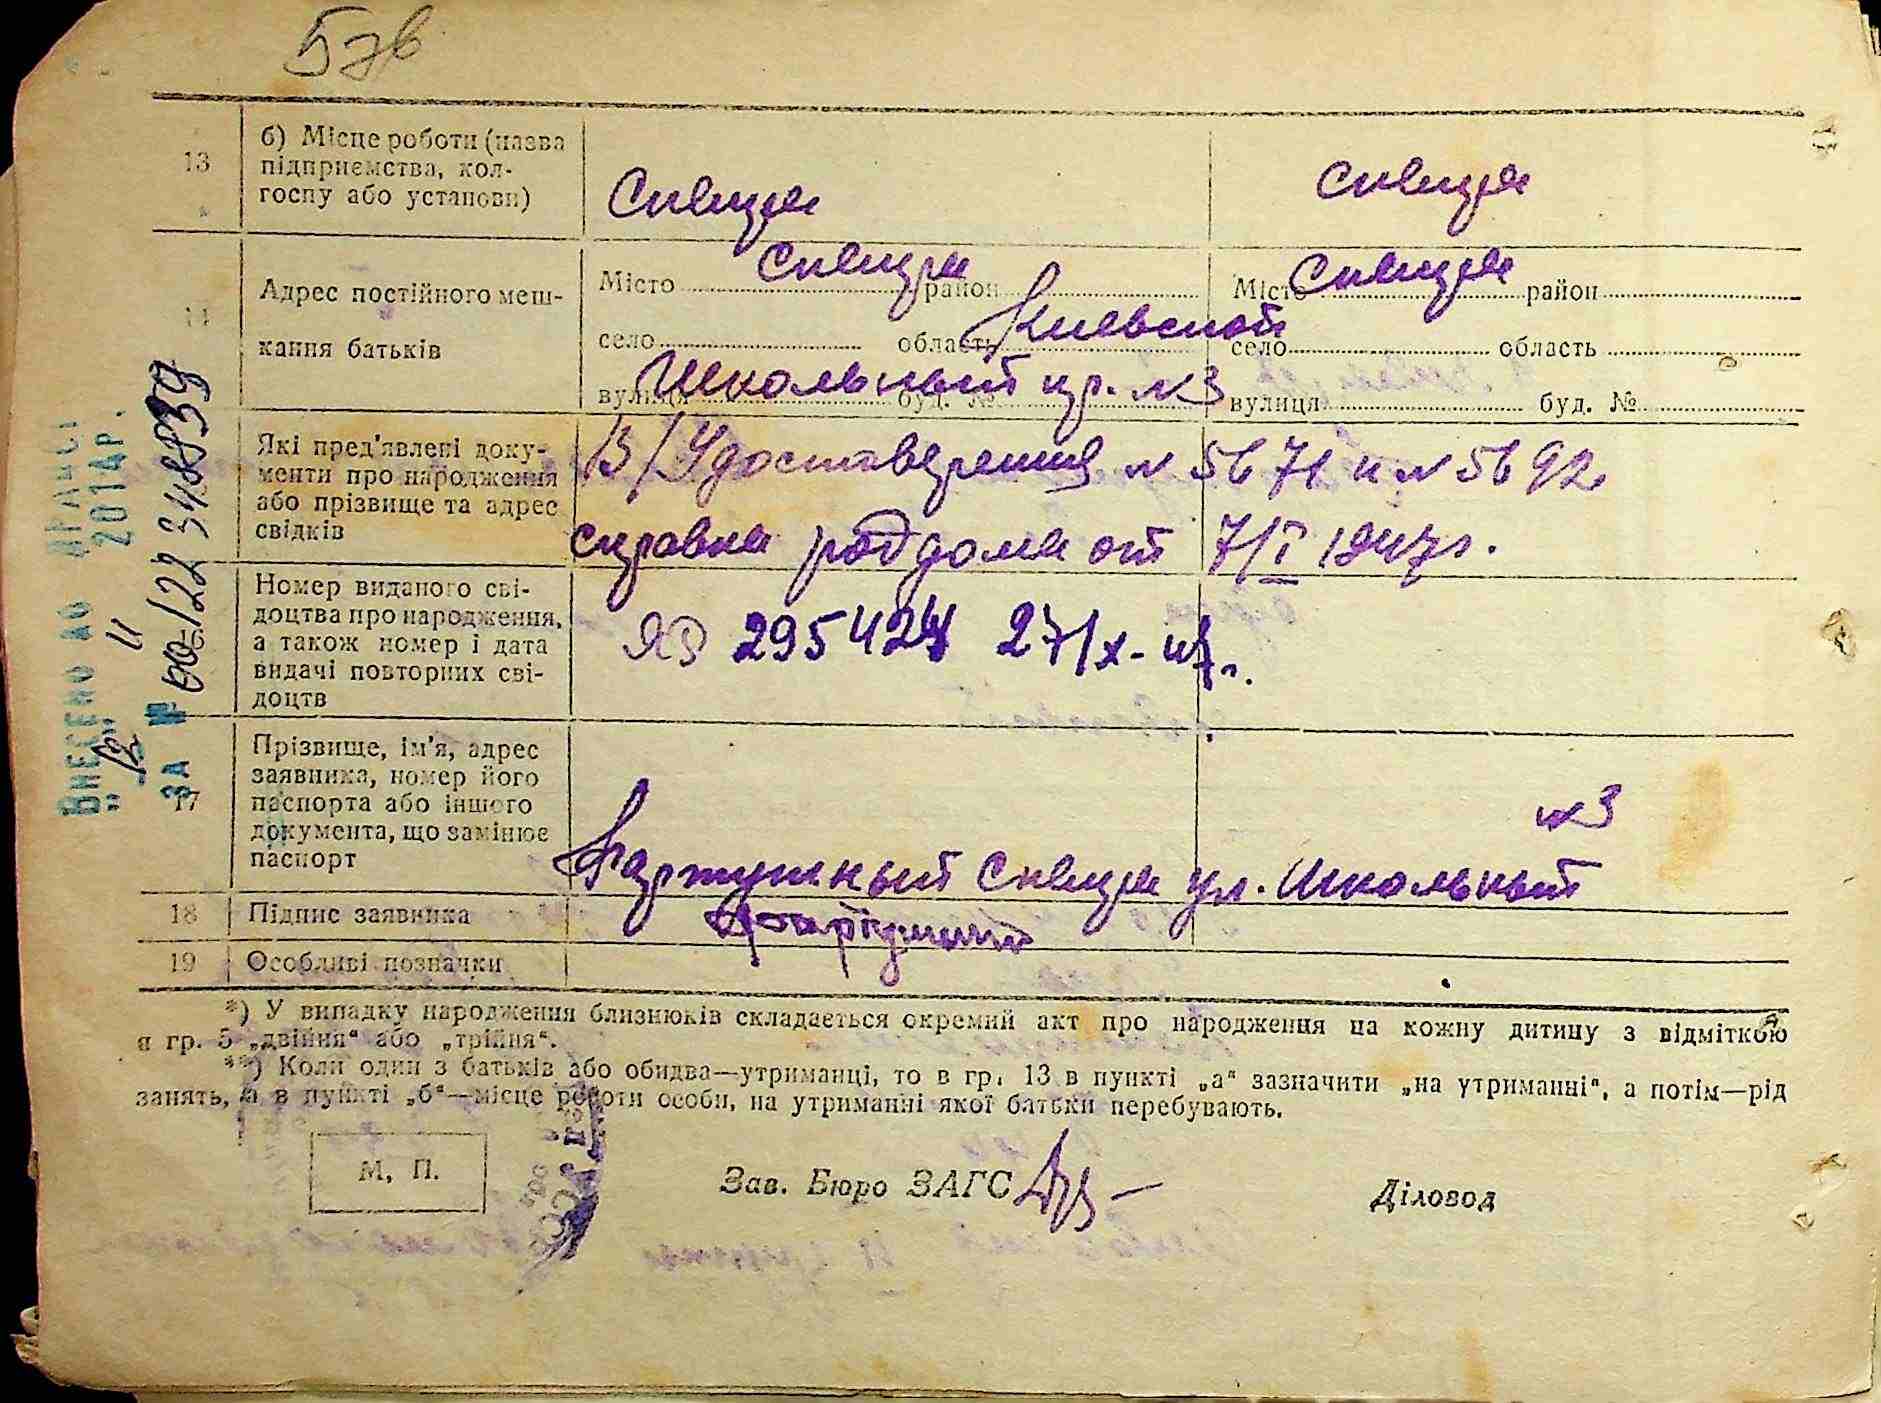 57в
13
б) Місце роботи (назва
підприємства, кол-
госпу або установи)
Сквира
Сквира
14
Адрес постійного меш-
кання батьків
Місто Сквира район
село область Киевской
вулиця Школьный пр. №3 буд. №
Місто Сквира район
село область
вулиця буд. №
Які пред'явлені доку-
менти про народження
або прізвище та адрес
свідків
В/Удостоверения №5671 и №5692
справка роддома от 7/I 1947г.
Номер виданого сві-
доцтва про народження,
а також номер і дата
видачі повторних сві-
доцтв
ЯЗ 295424 27/X-47г.
17
Прізвище, ім'я, адрес
заявника, номер його
паспорта або іншого
документа, що замінює
паспорт
№3
Сквира ул. Школьный
18
Підпис заявника
19
Особливі позначки
*) У випадку народження близнюків складається окремий акт про народження на кожну дитину з відміткою
в гр. 5 „двійня“ або „трійня“.
**) Коли один з батьків або обидва—утриманці, то в гр. 13 в пункті „а“ зазначити „на утриманні“, а потім—рід
занять, а в пункті „б“—місце роботи особи, на утриманні якої батьки перебувають.
М. П.
Зав. Бюро ЗАГС
Діловод
Внесено до ДРАЦС
„12“ 11 2014р.
за № 00122348839